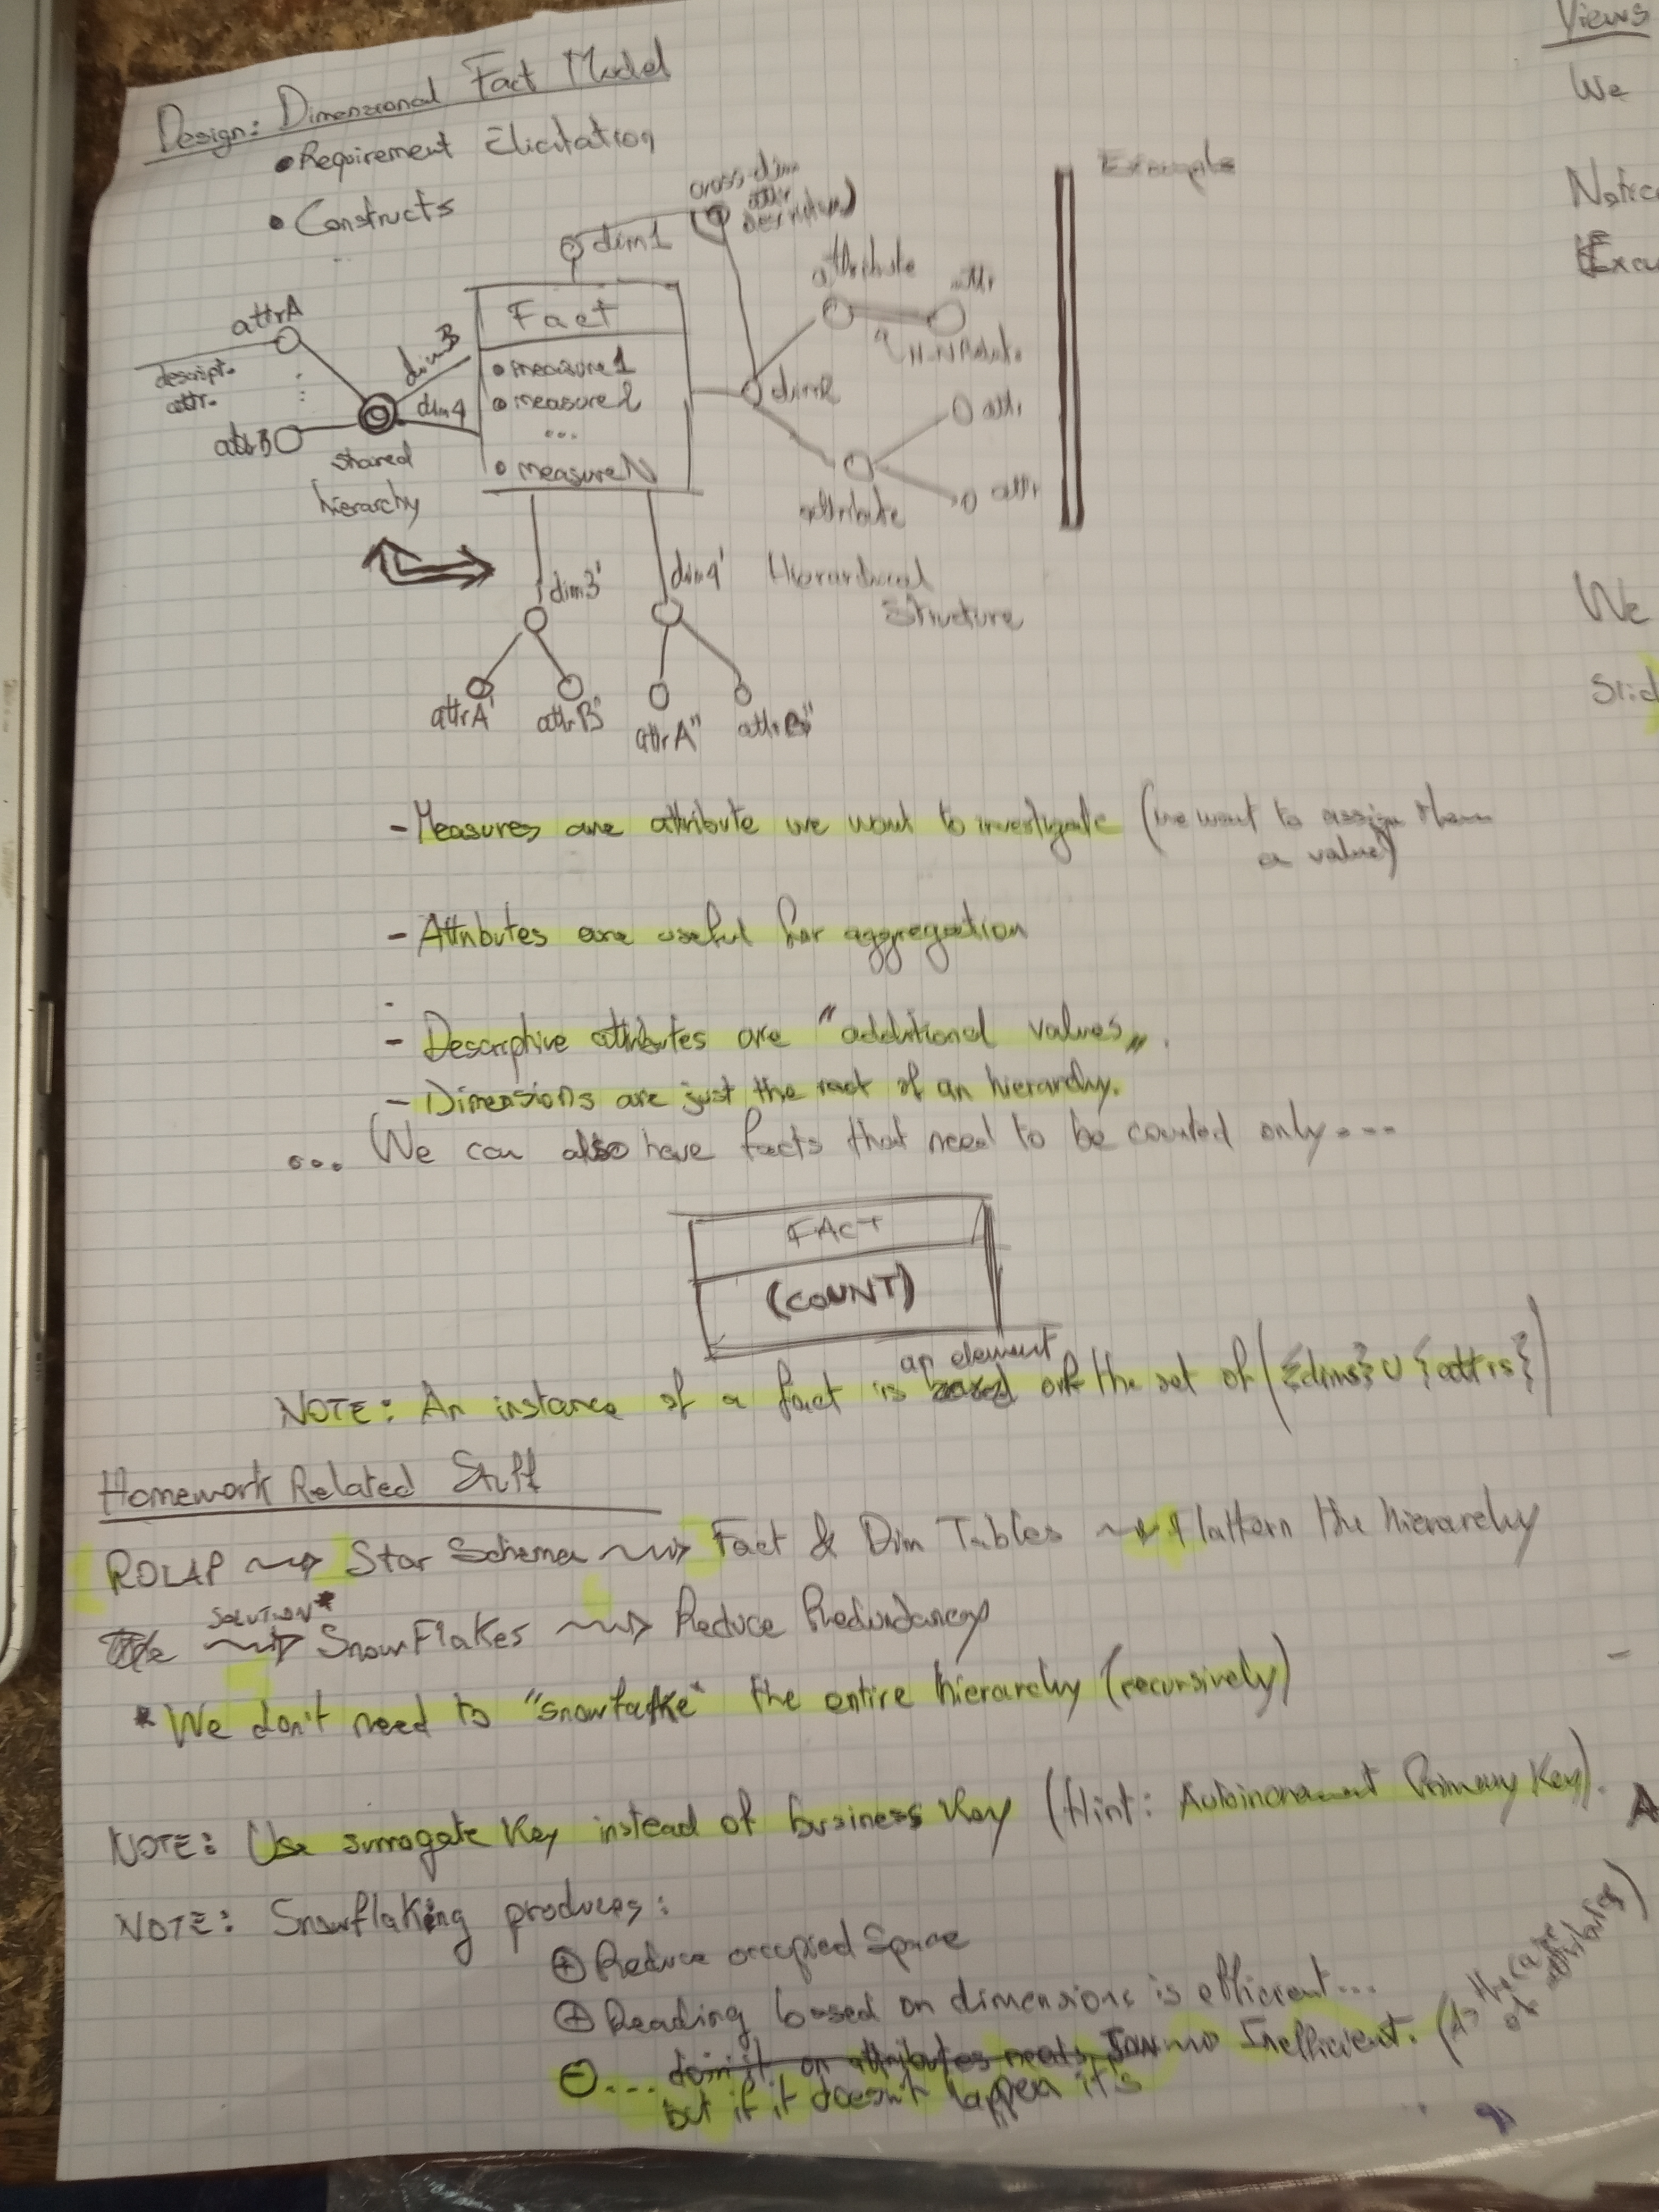 Design: Dimensional Fact Model
• Requirement Elicitation
• Constructs
cross-dim
attr
dim1
attribute
attr
attrA
descript.
attr.
attrB
shared
hierarchy
dim3
dim4
Fact
• measure1
• measure2
...
• measureN
dim2
attr
attribute
attr
Example
dim3'
dim4'
Hierarchical
Structure
attrA'
attrB'
attrA"
attrB"
- Measures are attribute we want to investigate (we want to assign them
a value)
- Attributes are useful for aggregation
- Descriptive attributes are "additional values".
- Dimensions are just the root of an hierarchy.
... We can also have facts that need to be counted only...
FACT
(COUNT)
an element
NOTE: An instance of a fact is of the set of ({dims} ∪ {attrs})
Homework Related Stuff
ROLAP ~> Star Schema ~> Fact & Dim Tables ~> Flattern the hierarchy
SOLUTION*
~> SnowFlakes ~> Reduce Redundancy
* We don't need to "snowfalke" the entire hierarchy (recursively)
NOTE: Use surrogate Key instead of business Key (Hint: Autoincrement Primary Key).
NOTE: Snowflaking produces:
⊕ Reduce occupied Space
⊕ Reading based on dimensions is efficient...
⊖ ... doing it on attributes needs JOIN ~> Inefficient.
but if it doesn't happen it's
of attributes)
Views
We
We
A